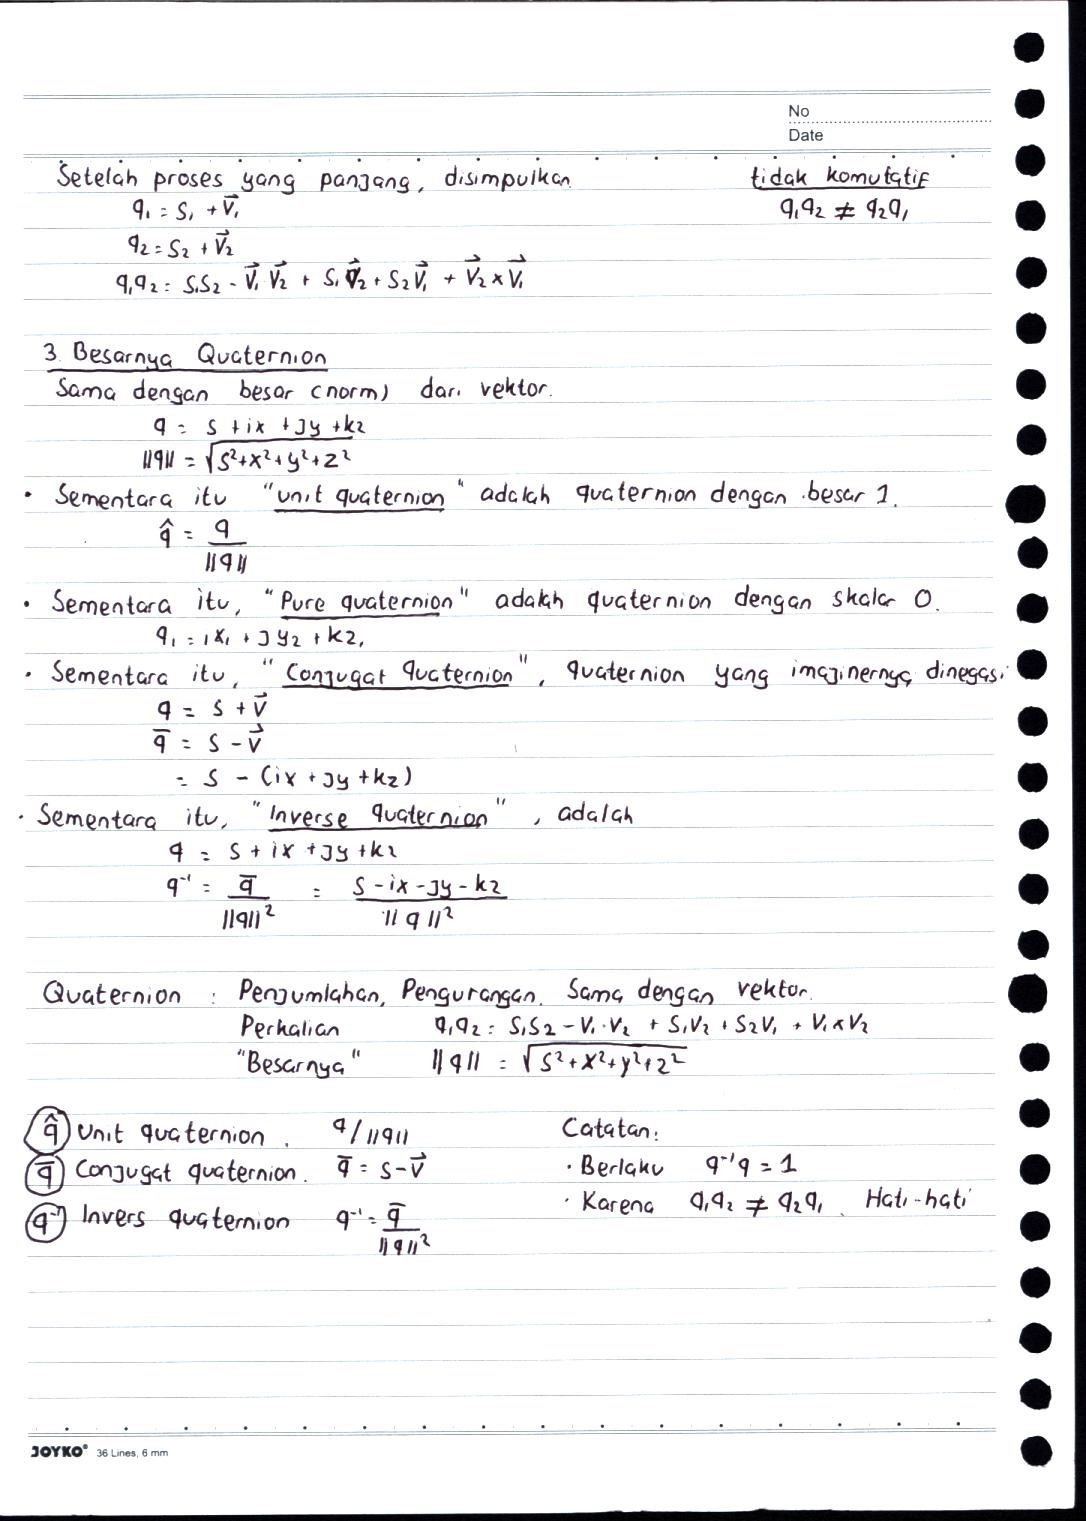 No
Date
Setelah proses yang panjang, disimpulkan. tidak komutatif
q₁ = S₁ + V⃗₁ q₁q₂ ≠ q₂q₁
q₂ = S₂ + V⃗₂
q₁q₂ = S₁S₂ - V⃗₁ V⃗₂ + S₁V⃗₂ + S₂V⃗₁ + V⃗₂ × V⃗₁
3. Besarnya Quaternion
Sama dengan besar (norm) dari vektor.
q = S + ix + jy + kz
||q|| = √(S² + x² + y² + z²)
• Sementara itu "unit quaternion" adalah quaternion dengan besar 1.
q̂ = q / ||q||
• Sementara itu, "Pure quaternion" adalah quaternion dengan skalar 0.
q₁ = ix₁ + jy₂ + kz₁
• Sementara itu, "Conjugat Quaternion", quaternion yang imajinernya dinegasi
q = S + V⃗
q̅ = S - V⃗
= S - (ix + jy + kz)
• Sementara itu, "Inverse Quaternion", adalah
q = S + ix + jy + kz
q⁻¹ = q̅ / ||q||² = S - ix - jy - kz / ||q||²
Quaternion : Penjumlahan, Pengurangan. Sama dengan vektor.
Perkalian q₁q₂ = S₁S₂ - V₁·V₂ + S₁V₂ + S₂V₁ + V₁×V₂
"Besarnya" ||q|| = √(S² + x² + y² + z²)
q̂ Unit quaternion. q/||q|| Catatan:
q̅ Conjugat quaternion. q̅ = S - V⃗ • Berlaku q⁻¹q = 1
q⁻¹ Invers quaternion q⁻¹ = q̅ / ||q||² • Karena q₁q₂ ≠ q₂q₁. Hati-hati
JOYKO® 36 Lines, 6 mm